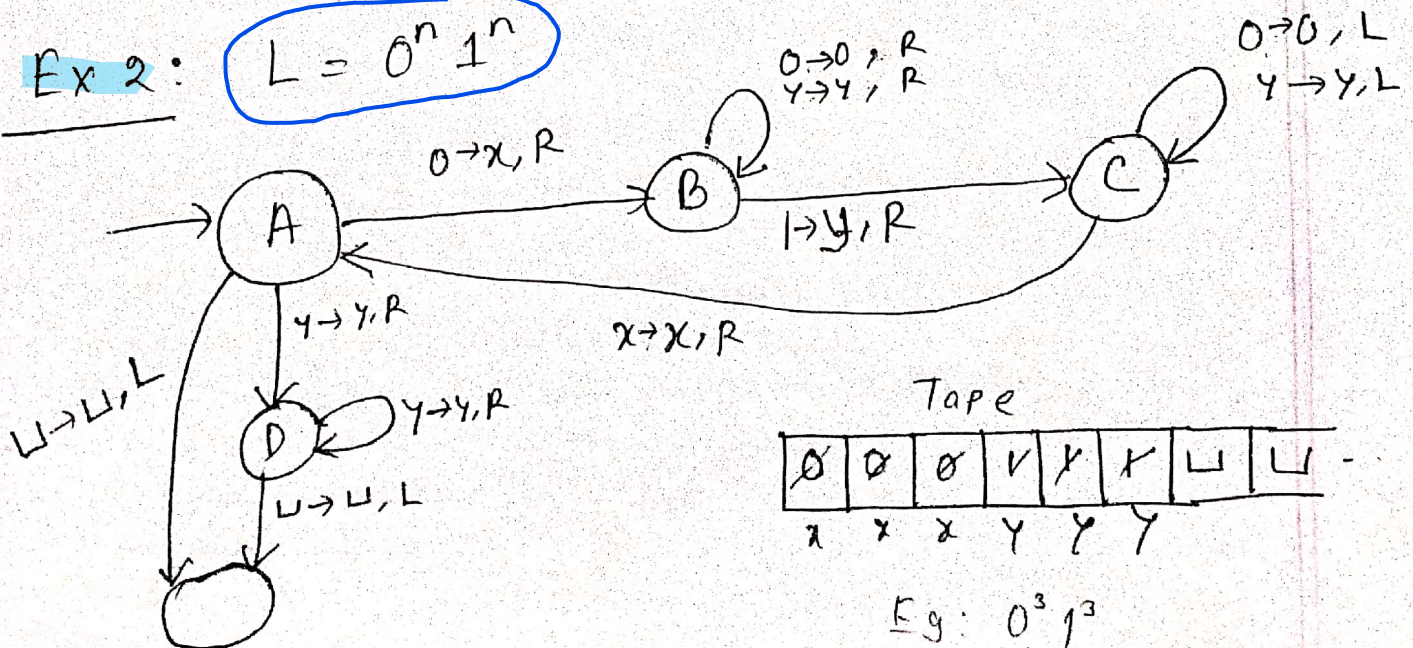 Ex 2: L = 0ⁿ 1ⁿ
0→0, R
Y→Y, R
0→0, L
Y→Y, L
0→x, R
A
B
C
1→y, R
Y→Y, R
x→x, R
⊔→⊔, L
D
Y→Y, R
⊔→⊔, L
Tape
0 0 0 1 1 1 ⊔ ⊔ -
x x x Y Y Y
Eg: 0³ 1³